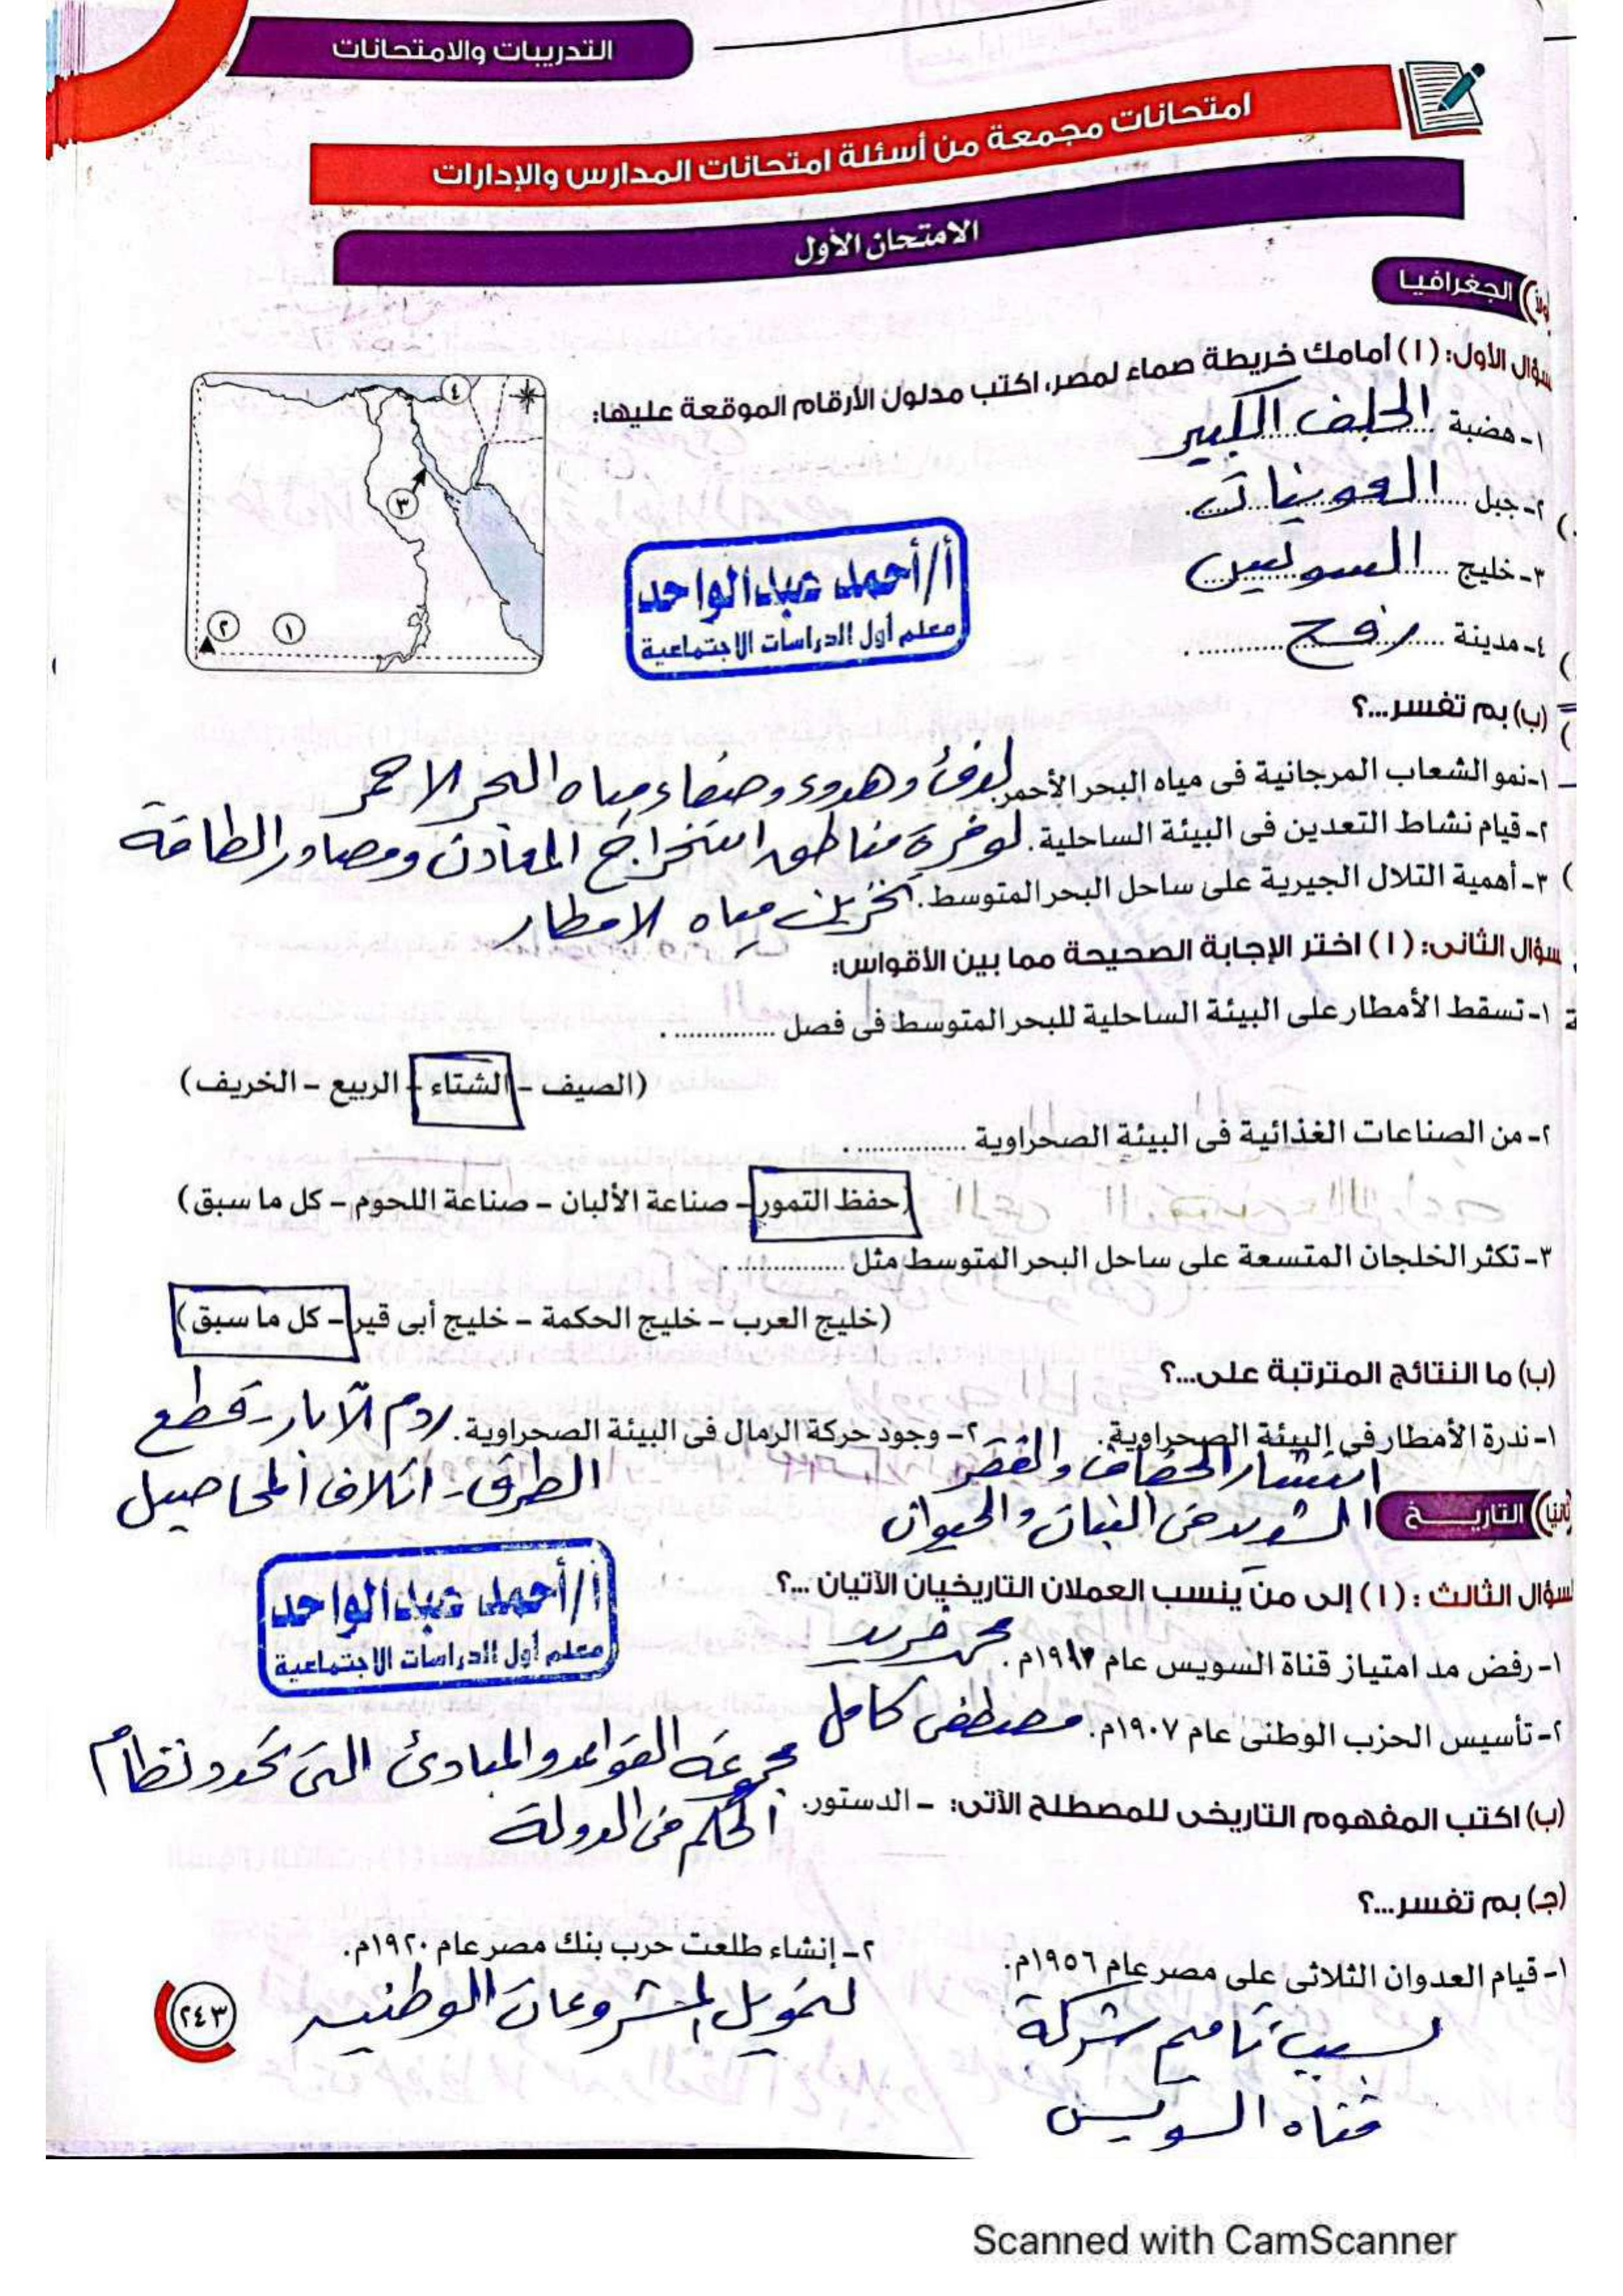 التدريبات والامتحانات
امتحانات مجمعة من أسئلة امتحانات المدارس والإدارات
الامتحان الأول
الجغرافيا
سؤال الأول: (١) أمامك خريطة صماء لمصر، اكتب مدلول الأرقام الموقعة عليها:
١- هضبة الجلف الكبير
٢- جبل العوينات
٣- خليج السويس
٤- مدينة رفح
٤
٣
٢ ١
أ/أحمد عبدالواحد
معلم أول الدراسات الاجتماعية
(ب) بم تفسر...؟
١- نمو الشعاب المرجانية فى مياه البحر الأحمر. لدفئ وهدوء وصفاء مياه البحر الاحمر
٢- قيام نشاط التعدين فى البيئة الساحلية. لوفرة مناطق استخراج المعادن ومصادر الطاقة
٣- أهمية التلال الجيرية على ساحل البحر المتوسط. تخزين مياه الامطار
سؤال الثانى: (١) اختر الإجابة الصحيحة مما بين الأقواس:
١- تسقط الأمطار على البيئة الساحلية للبحر المتوسط فى فصل .............. .
(الصيف - الشتاء - الربيع - الخريف)
٢- من الصناعات الغذائية فى البيئة الصحراوية .............. .
(حفظ التمور - صناعة الألبان - صناعة اللحوم - كل ما سبق)
٣- تكثر الخلجان المتسعة على ساحل البحر المتوسط مثل .............. .
(خليج العرب - خليج الحكمة - خليج أبى قير - كل ما سبق)
(ب) ما النتائج المترتبة على...؟
١- ندرة الأمطار فى البيئة الصحراوية. ٢- وجود حركة الرمال فى البيئة الصحراوية. ردم الآبار - قطع
انتشار الجفاف والفقر الطرق - اتلاف المحاصيل
الشديد فى النبات والحيوان
ثانيا التاريخ
سؤال الثالث: (١) إلى من ينسب العملان التاريخيان الآتيان ...؟
أ/أحمد عبدالواحد
معلم أول الدراسات الاجتماعية
١- رفض مد امتياز قناة السويس عام م. محمد فريد
٢- تأسيس الحزب الوطنى عام ١٩٠٧م. مصطفى كامل
(ب) اكتب المفهوم التاريخى للمصطلح الآتى: - الدستور. مجموعة القواعد والمبادئ التى تحدد نظام
الحكم فى الدولة
(جـ) بم تفسر...؟
١- قيام العدوان الثلاثى على مصر عام ١٩٥٦م. ٢- إنشاء طلعت حرب بنك مصر عام ١٩٢٠م.
بسبب تاميم شركة لتمويل المشروعات الوطنيه
قناه السويس
٢٤٣
Scanned with CamScanner